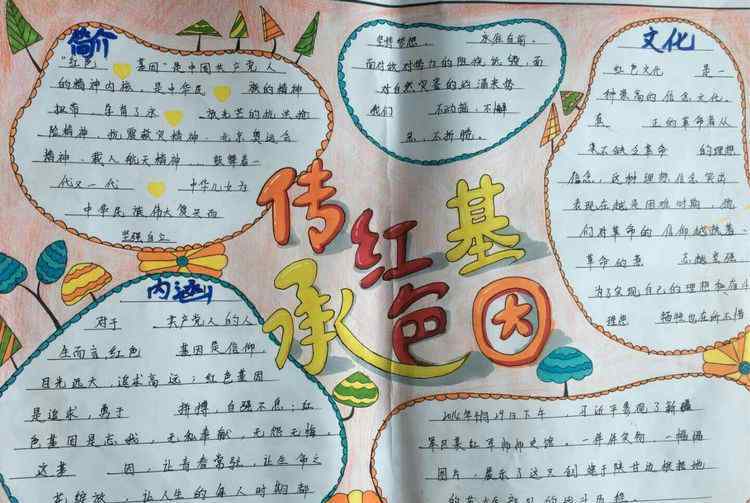 简介
"红色 基因"是中国共产党人
的精神内核，是中华民 族的精神
纽带。孕育了永 放光芒的抗洪抢
险精神、抗震救灾精神、北京奥运会
精神、载人航天精神……鼓舞着一
代又一代 中华儿女为
中华民族伟大复兴而
坚强自立
坚持梦想， 永往直前。
面对敌对势力的阻挠抗衡，面
对自然灾害的凶涌来势
我们 不动摇，不懈
怠，不折腾。
文化
红色文化 是一
种崇高的信念文化。
真 正的革命者从
来不缺乏革命 的理想
信念，这种理想信念突出
表现在越是困难时期，他
们对革命的信仰越执着。
革命的意 志越坚强
为了实现自己的理想和奋斗
理想 牺牲也在所不惜
传承红色基因
内涵
对于 共产党人的人
生而言，红色 基因是信仰，
目光远大，追求高远；红色基因
是追求，勇于 拼搏，自强不息；红
色基因是忘我，无私奉献，无怨无悔。
这基 因，让青春常驻，让生命之
花绽放，让人生的每人时期都
29日下午，习近平参观了新疆
军区某红军师师史馆。一件件实物，一幅幅
图片，展示了这支创建于陕甘边根据地